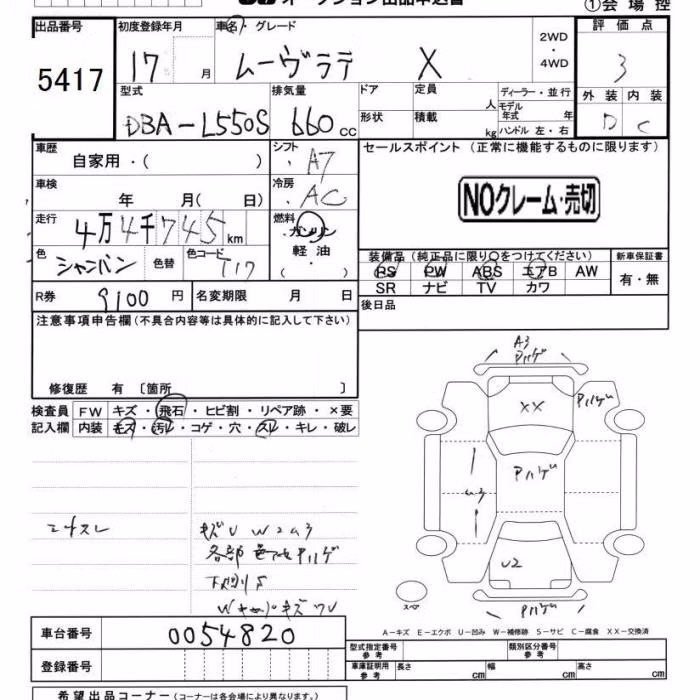 オークション出品申込書
①会場控
出品番号 初度登録年月 車名・グレード 評価点
5417 17 月 ムーヴラテ X 2WD・4WD 3
外装 内装
D C
型式 排気量 ドア 定員 人 ディーラー・並行
DBA-L550S 660 cc 形状 積載 kg モデル年式 年
ハンドル 左・右
車歴 シフト セールスポイント (正常に機能するものに限ります)
自家用・( ) A7
車検 冷房 NOクレーム・売切
年 月( 日) AC
走行 燃料
4万4千745 km ガソリン
軽油
・( )
色 色替 色コード 装備品(純正品に限り○をつけてください) 新車保証書
シャンパン T17 PS PW ABS エアB AW 有・無
SR ナビ TV カワ
R券 9100円 名変期限 月 日 後日品
注意事項申告欄(不具合内容等は具体的に記入して下さい)
修復歴 有 〔箇所 〕
検査員 FW キズ・飛石・ヒビ割・リペア跡・×要
記入欄 内装 キズ・汚レ・コゲ・穴・スレ・キレ・破レ
A3
Pハゲ
XX Pハゲ
Pハゲ
U3
U2
Pハゲ
スペア
キズU W2U3
各部色アセPハゲ
下廻りS
A-キズ E-エクボ U-凹み W-補修跡 S-サビ C-腐食 XX-交換済
車台番号 0054820 型式指定番号 参考 類別区分番号 参考
登録番号 車庫証明用 参考 長さ cm 幅 cm 高さ cm
希望出品コーナー(コーナーは各会場により異なります。)